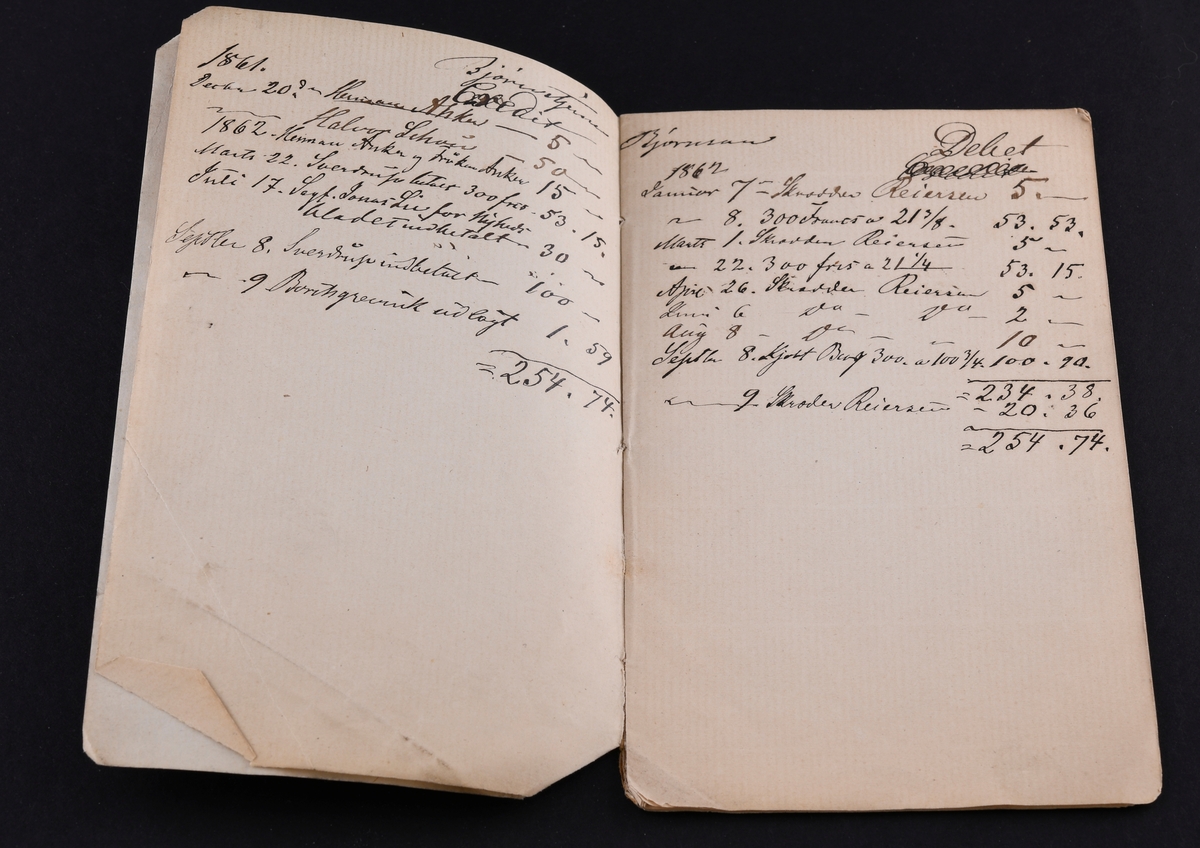 1861. Bjørnstjerne
Credit
Decbr 20de Herman Anker — 5 ~
Halvor Schou — 50 ~
1862 - Herman Anker og frøken Anker 15 ~
Marts 22. Sverdrup 300 frcs - 53. 15.
Juli 17. Jonas Lie for Nyheds
bladet indbetalt ~ 30 ~
Septbr 8. Sverdrup indbetalt ~ 100 ~
~ 9 Borchgrevink udlagt 1. 59
= 254. 74.
Bjørnson Debet
1862
Januar 7 - Skrædder Reiersen 5. ~
~ 8. 300 Francs a 21 3/8. 53. 53.
Marts 1. Skrædder Reiersen 5 ~
~ 22. 300 frcs a 21 1/4 53. 15.
April 26. Skrædder Reiersen 5 ~
Juni 6 Do - Do - 2 ~
Aug 8 - Do - 10 ~
Septbr 8. Kjøbt 300. a 100 3/4. 100. 90.
= 234. 38.
~ 9 Skræder Reiersen - 20. 36
= 254. 74.